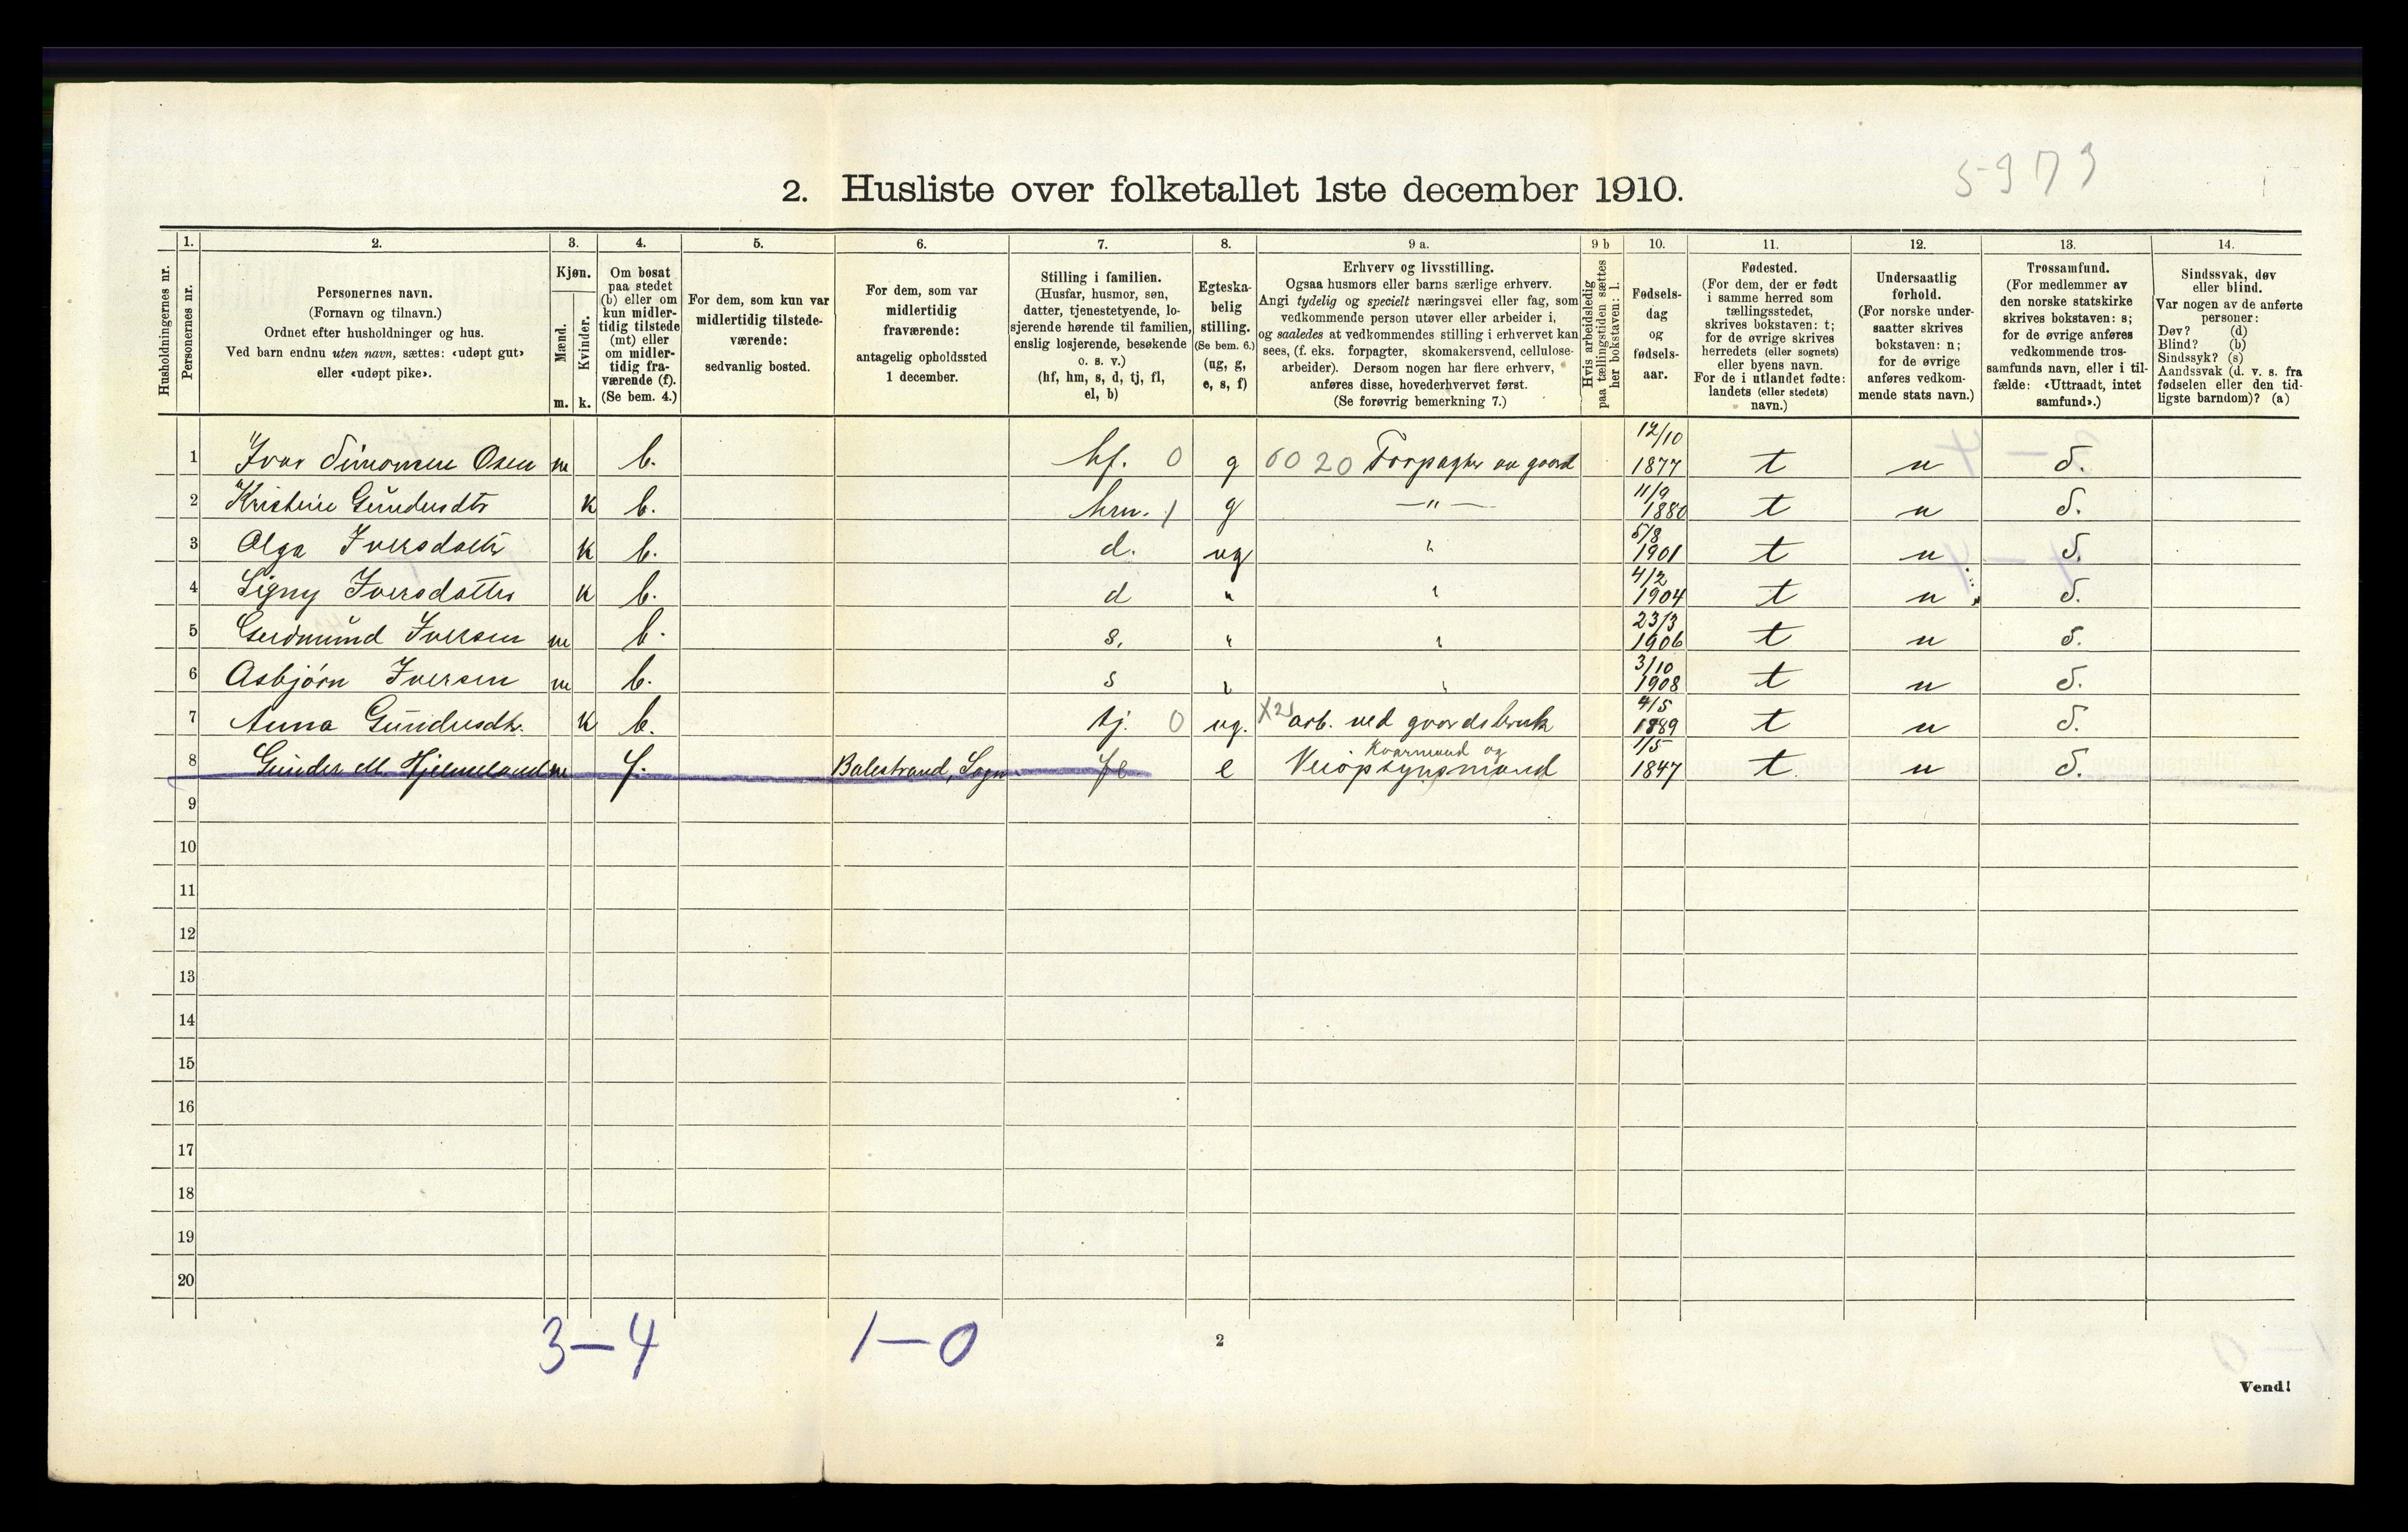 5973
2. Husliste over folketallet 1ste december 1910.
Husholdningernes nr.
1.
Personernes nr.
2.
Personernes navn.
(Fornavn og tilnavn.)
Ordnet efter husholdninger og hus.
Ved barn endnu uten navn, sættes: «udøpt gut»
eller «udøpt pike».
3.
Kjøn.
Mænd.
Kvinder.
m. k.
4.
Om bosat
paa stedet
(b) eller om
kun midler-
tidig tilstede
(mt) eller
om midler-
tidig fra-
værende (f).
(Se bem. 4.)
5.
For dem, som kun var
midlertidig tilstede-
værende:
sedvanlig bosted.
6.
For dem, som var
midlertidig
fraværende:
antagelig opholdssted
1 december.
7.
Stilling i familien.
(Husfar, husmor, søn,
datter, tjenestetyende, lo-
sjerende hørende til familien,
enslig losjerende, besøkende
o. s. v.)
(hf, hm, s, d, tj, fl,
el, b)
8.
Egteska-
belig
stilling.
(Se bem. 6.)
(ug, g,
e, s, f)
9 a.
Erhverv og livsstilling.
Ogsaa husmors eller barns særlige erhverv.
Angi tydelig og specielt næringsvei eller fag, som
vedkommende person utøver eller arbeider i,
og saaledes at vedkommendes stilling i erhvervet kan
sees, (f. eks. forpagter, skomakersvend, cellulose-
arbeider). Dersom nogen har flere erhverv,
anføres disse, hovederhvervet først.
(Se forøvrig bemerkning 7.)
9 b
Hvis arbeidsledig
paa tællingstiden sættes
her bokstaven: l.
10.
Fødsels-
dag
og
fødsels-
aar.
11.
Fødested.
(For dem, der er født
i samme herred som
tællingsstedet,
skrives bokstaven: t;
for de øvrige skrives
herredets (eller sognets)
eller byens navn.
For de i utlandet fødte:
landets (eller stedets)
navn.)
12.
Undersaatlig
forhold.
(For norske under-
saatter skrives
bokstaven: n;
for de øvrige
anføres vedkom-
mende stats navn.)
13.
Trossamfund.
(For medlemmer av
den norske statskirke
skrives bokstaven: s;
for de øvrige anføres
vedkommende tros-
samfunds navn, eller i til-
fælde: «Uttraadt, intet
samfund».)
14.
Sindssvak, døv
eller blind.
Var nogen av de anførte
personer:
Døv? (d)
Blind? (b)
Sindssyk? (s)
Aandssvak (d. v. s. fra
fødselen eller den tid-
ligste barndom)? (a)
1 Ivar Simonsen Osen m b. hf. 0 g 6020 Forpagter av gaard 12/10 1877 t n S.
2 Kristine Gundersdtr k b. hm. 1 g —"— 11/9 1880 t n S.
3 Olga Iversdattr k b. d. ug " 5/8 1901 t n S.
4 Signy Iversdatter k b. d " " 4/2 1904 t n S.
5 Gudmund Iversen m b. s. " " 23/3 1906 t n S.
6 Asbjørn Iversen m b. s " " 3/10 1908 t n S.
7 Anna Gundersdtr. k b. tj. 0 ug. arb. ved gaardsbruk 4/5 1889 t n S.
8 Gunder M. Hjelmeland m f. Balestrand, Sogn fl e Kvarmand og Veiopsynsmand 1/5 1847 t n S.
9
10
11
12
13
14
15
16
17
18
19
20
3—4 1—0
2
Vend!